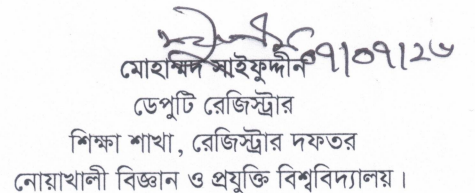 ০৭/০৭/২৬
মোহাম্মদ সাইফুদ্দীন
ডেপুটি রেজিস্ট্রার
শিক্ষা শাখা, রেজিস্ট্রার দফতর
নোয়াখালী বিজ্ঞান ও প্রযুক্তি বিশ্ববিদ্যালয়।